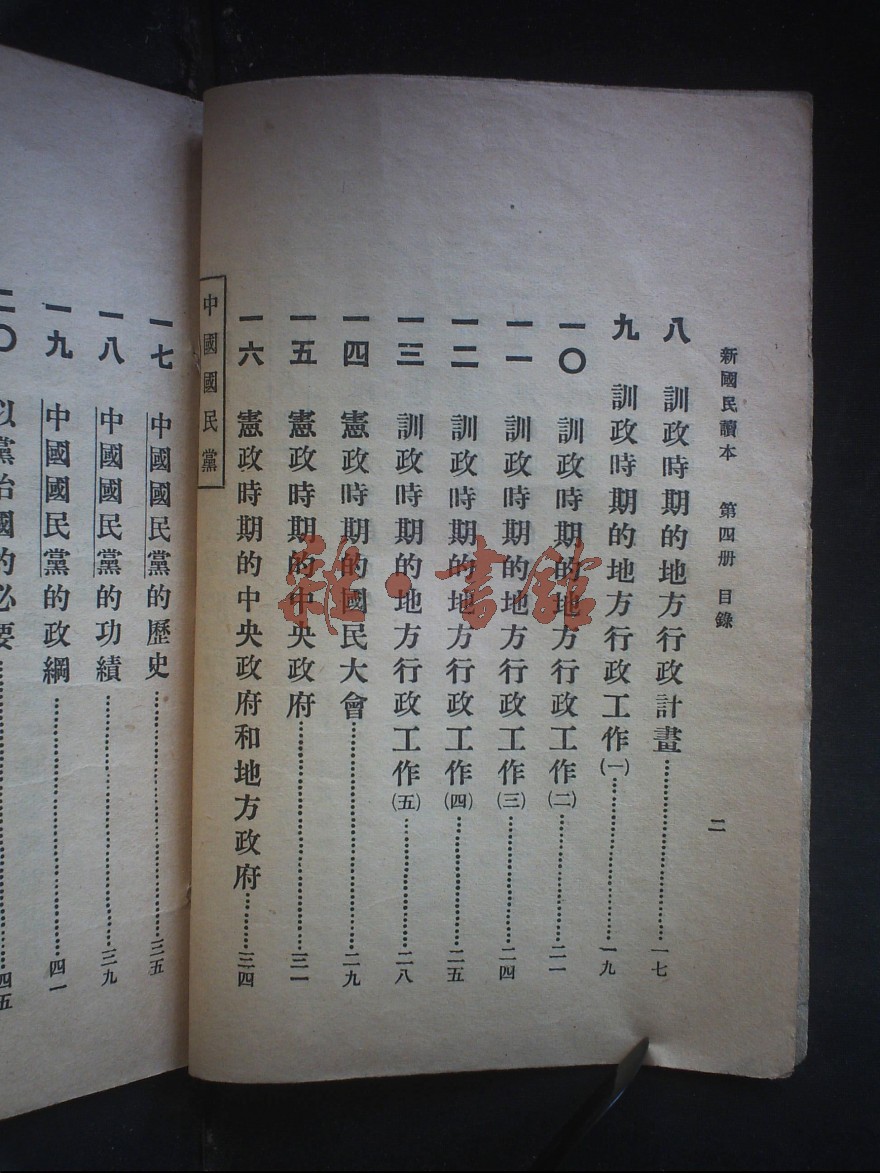 新國民讀本 第四册 目錄 二
八 訓政時期的地方行政計畫……一七
九 訓政時期的地方行政工作(一)……一九
一〇 訓政時期的地方行政工作(二)……二一
一一 訓政時期的地方行政工作(三)……二四
一二 訓政時期的地方行政工作(四)……二五
一三 訓政時期的地方行政工作(五)……二八
一四 憲政時期的國民大會……二九
一五 憲政時期的中央政府……三一
一六 憲政時期的中央政府和地方政府……三四
中國國民黨
一七 中國國民黨的歷史……三五
一八 中國國民黨的功績……三九
一九 中國國民黨的政綱……四一
二〇 以黨治國的必要……四五
雜·書館